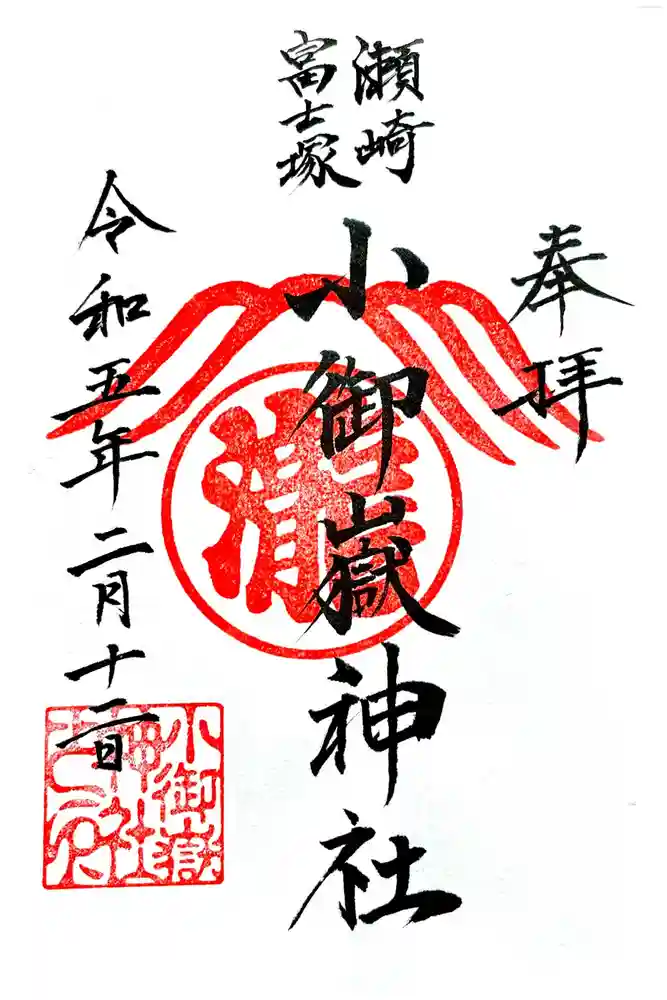 奉拝
瀬崎
富士塚
小御嶽神社
令和五年二月十二日
小御嶽
神社